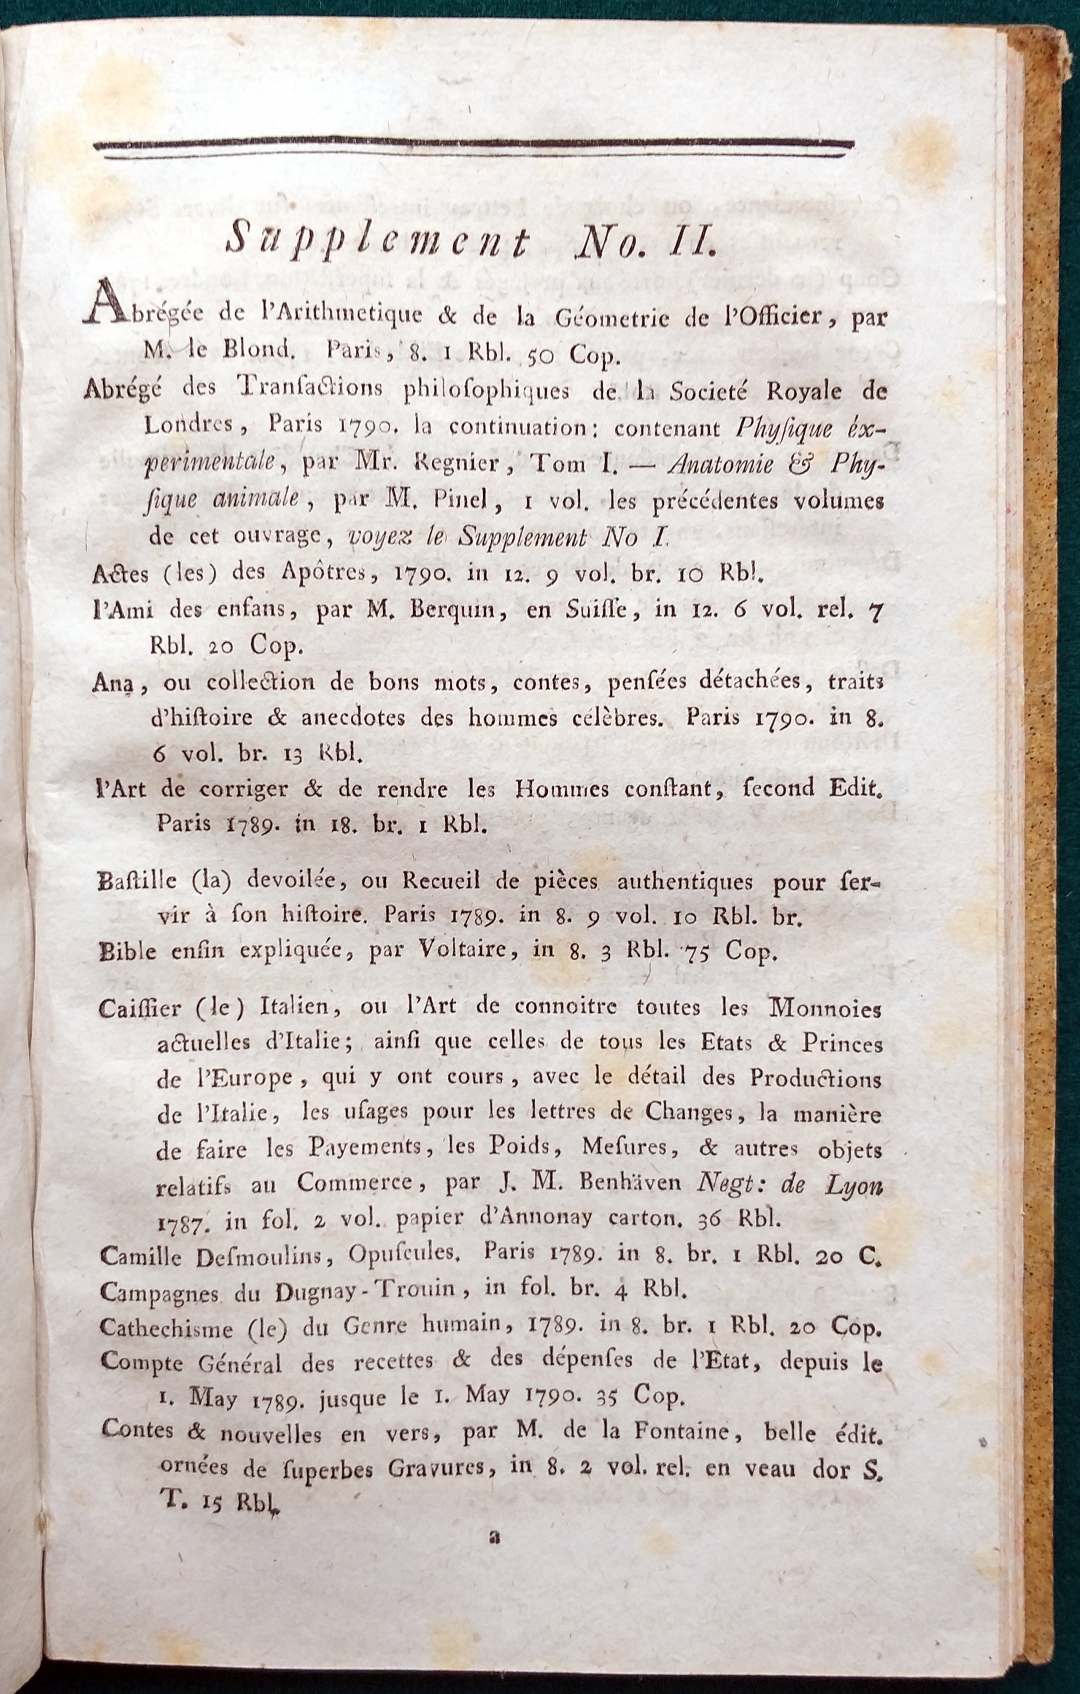 Supplement No. II.
Abrégée de l'Arithmetique & de la Géometrie de l'Officier, par
M. le Blond. Paris, 8. 1 Rbl. 50 Cop.
Abrégé des Tranſactions philoſophiques de la Societé Royale de
Londres, Paris 1790. la continuation: contenant Phyſique éx-
perimentale, par Mr. Regnier, Tom I. — Anatomie & Phy-
ſique animale, par M. Pinel, 1 vol. les précédentes volumes
de cet ouvrage, voyez le Supplement No I.
Actes (les) des Apôtres, 1790. in 12. 9 vol. br. 10 Rbl.
l'Ami des enfans, par M. Berquin, en Suiſſe, in 12. 6 vol. rel. 7
Rbl. 20 Cop.
Ana, ou collection de bons mots, contes, penſées détachées, traits
d'hiſtoire & anecdotes des hommes célèbres. Paris 1790. in 8.
6 vol. br. 13 Rbl.
l'Art de corriger & de rendre les Hommes conſtant, ſecond Edit.
Paris 1789. in 18. br. 1 Rbl.
Baſtille (la) devoilée, ou Recueil de pièces authentiques pour ſer-
vir à ſon hiſtoire. Paris 1789. in 8. 9 vol. 10 Rbl. br.
Bible enfin expliquée, par Voltaire, in 8. 3 Rbl. 75 Cop.
Caiſſier (le) Italien, ou l'Art de connoitre toutes les Monnoies
actuelles d'Italie; ainſi que celles de tous les Etats & Princes
de l'Europe, qui y ont cours, avec le détail des Productions
de l'Italie, les uſages pour les lettres de Changes, la manière
de faire les Payements, les Poids, Meſures, & autres objets
relatifs au Commerce, par J. M. Benhäven Negt: de Lyon
1787. in fol. 2 vol. papier d'Annonay carton. 36 Rbl.
Camille Deſmoulins, Opuſcules. Paris 1789. in 8. br. 1 Rbl. 20 C.
Campagnes du Dugnay-Trouin, in fol. br. 4 Rbl.
Cathechisme (le) du Genre humain, 1789. in 8. br. 1 Rbl. 20 Cop.
Compte Général des recettes & des dépenſes de l'Etat, depuis le
1. May 1789. jusque le 1. May 1790. 35 Cop.
Contes & nouvelles en vers, par M. de la Fontaine, belle édit.
ornées de ſuperbes Gravures, in 8. 2 vol. rel. en veau dor S.
T. 15 Rbl.
a